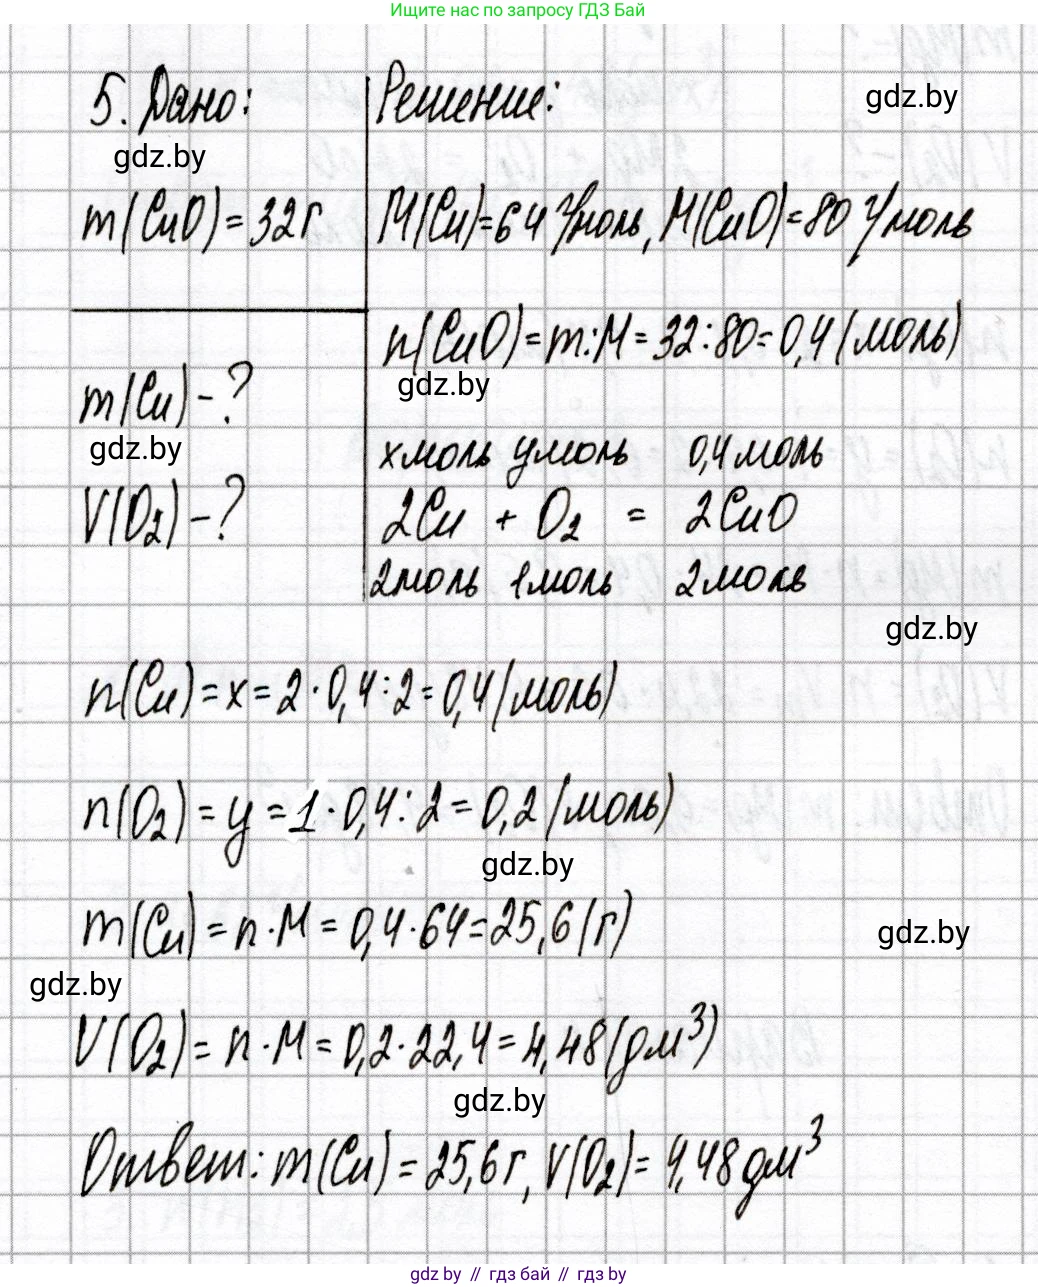 Ищите нас по запросу ГДЗ Бай
5. Дано:
Решение:
gdz.by
gdz.by
m(CuO)=32г
M(Cu)=64 г/моль, M(CuO)=80 г/моль
n(CuO)=m:M=32:80=0,4(моль)
gdz.by
m(Cu)-?
gdz.by
x моль y моль 0,4 моль
V(O₂)-?
2Cu + O₂ = 2CuO
2 моль 1 моль 2 моль
gdz.by
n(Cu)=x=2·0,4:2=0,4(моль)
n(O₂)=y=1·0,4:2=0,2(моль)
gdz.by
m(Cu)=n·M=0,4·64=25,6(г)
gdz.by
gdz.by
V(O₂)=n·M=0,2·22,4=4,48(дм³)
gdz.by
Ответ: m(Cu)=25,6г, V(O₂)=4,48дм³
gdz.by // гдз бай // gdz.by